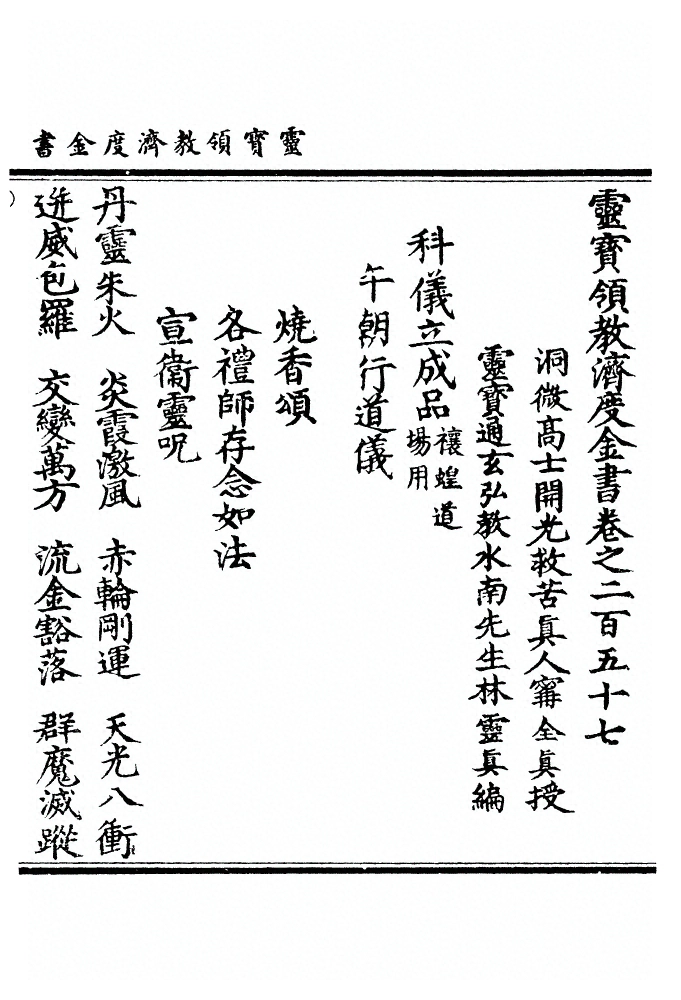 靈寶領教濟度金書
靈寶領教濟度金書卷之二百五十七
洞微高士開光救苦眞人寗全眞授
靈寶通玄弘教水南先生林靈眞編
科儀立成品禳蝗道場用
午朝行道儀
燒香頌
各禮師存念如法
宣衞靈呪
丹靈朱火 炎霞激風 赤輪剛運 天光八衝
迸威包羅 交變萬方 流金豁落 群魔滅蹤